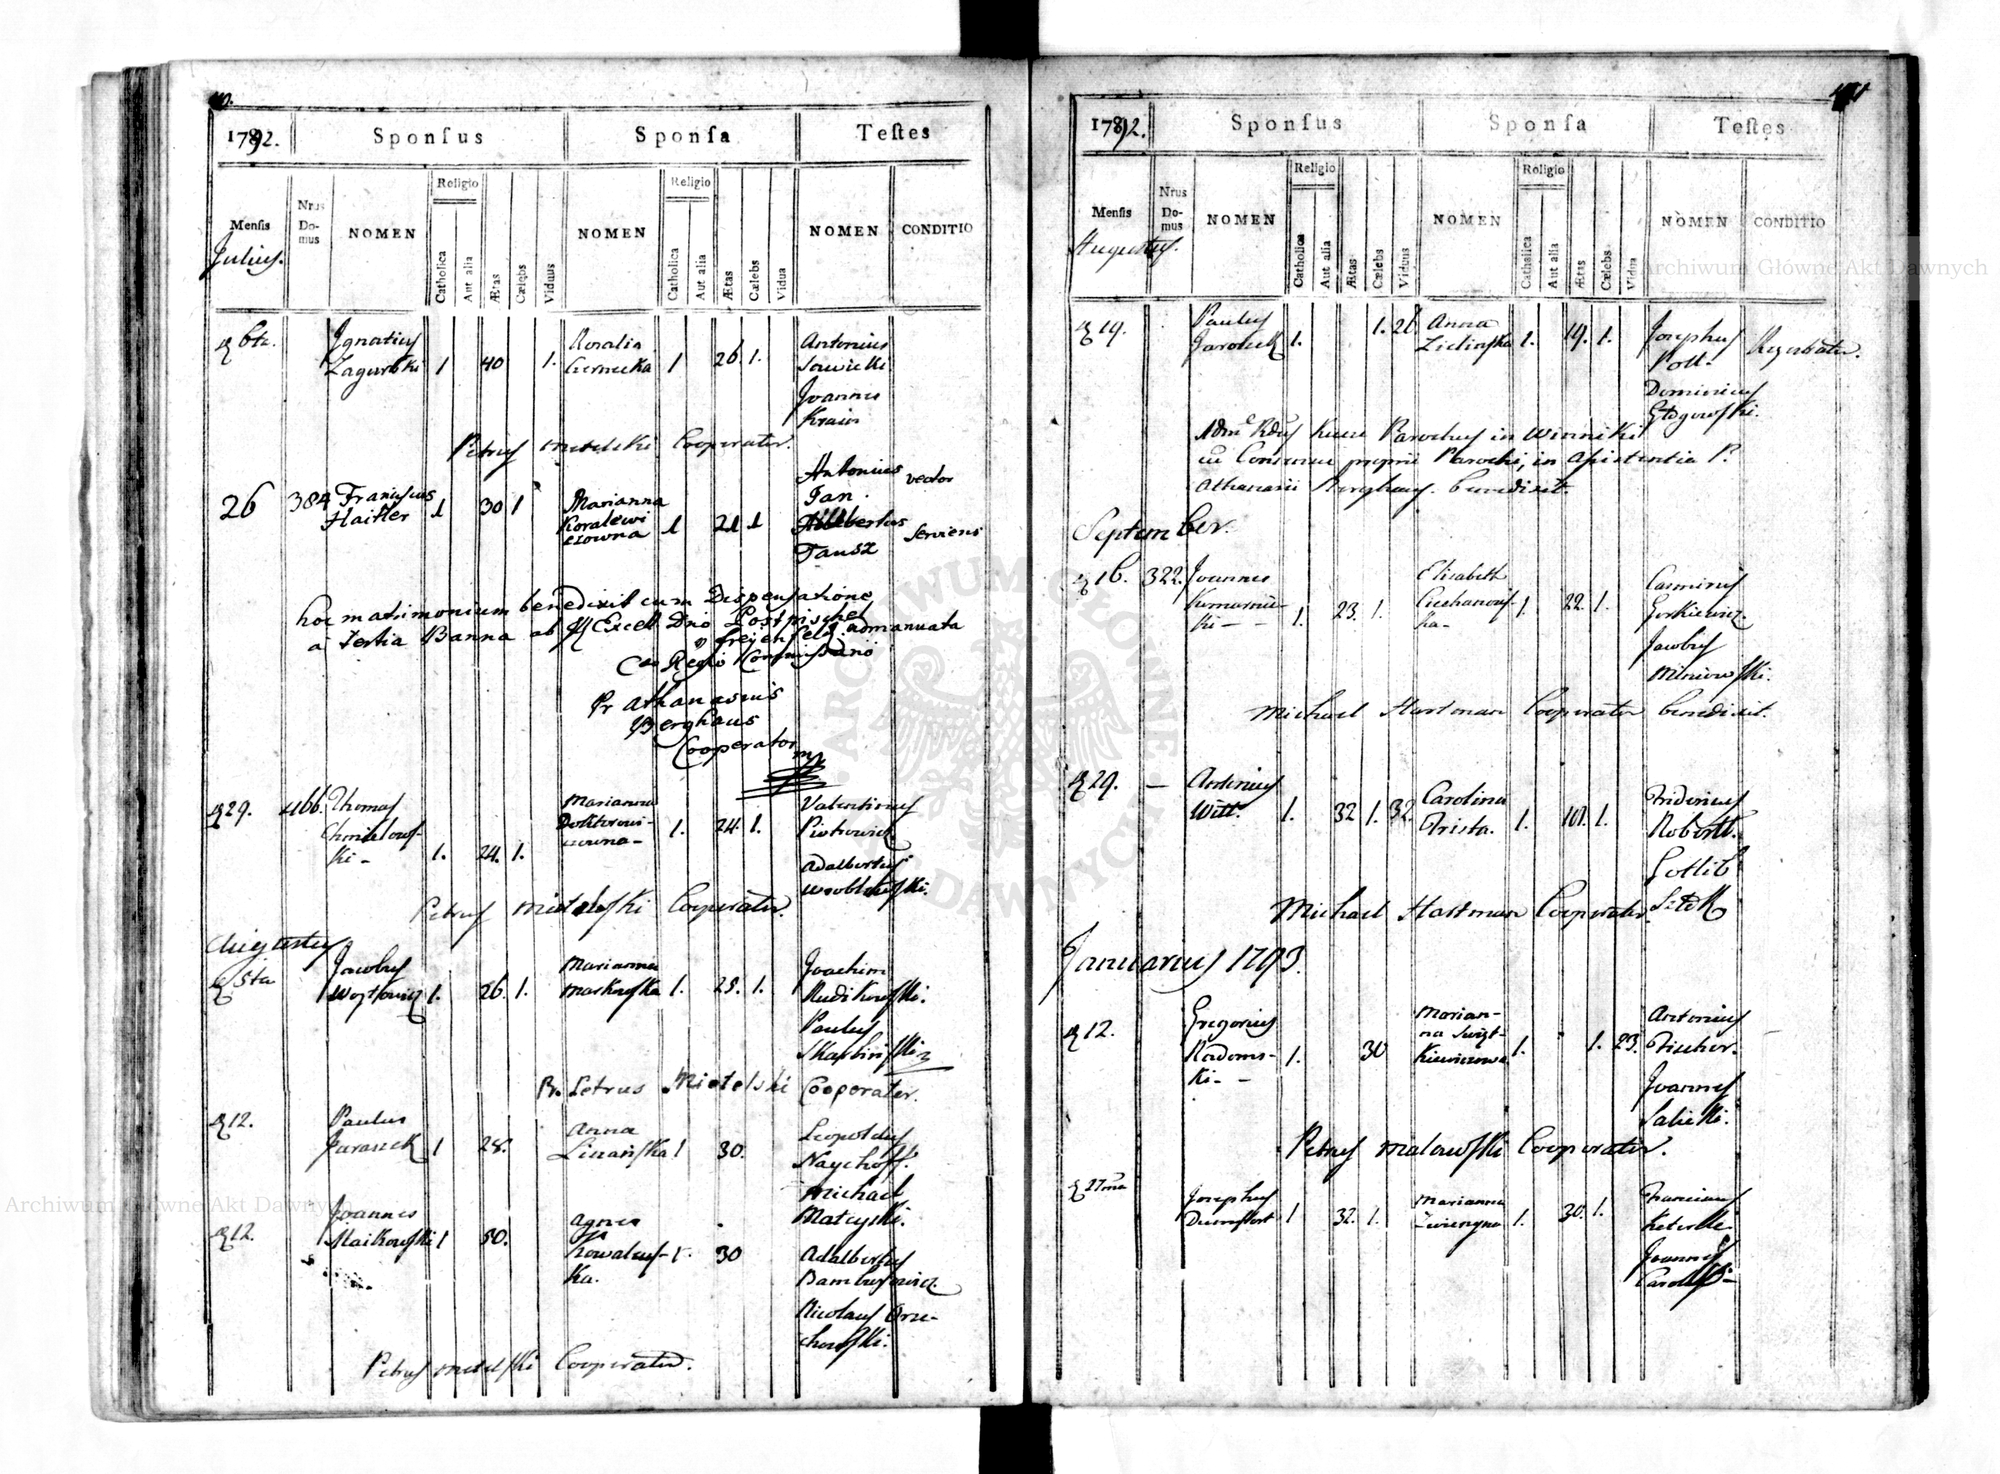 40.
1792.
Sponſus
Sponſa
Teſtes
Menſis
Nrus Do-mus
NOMEN
Religio
Catholica
Aut alia
Ætas
Cælebs
Viduus
NOMEN
Religio
Catholica
Aut alia
Ætas
Cælebs
Vidua
NOMEN
CONDITIO
Julius.
6ta.
Ignatius
Zagurski 1 40 1.
Rosalia
1 26 1.
Antonius
Sawicki
Joannes
Krain
Petrus Mitelski Cooperator.
26 384 Franciscus
Haitler 1 30 1
Marianna
Koralewi
czowna 1 21 1
Antonius
Jan
vector
Adalbertus
Tausz
serviens
hoc matrimonium benedixit cum Dispensatione
a Tertia Banna ab Excell Dno Postpischel
a freyenfels admanuata
Cæs Regio Commissario
Pr Athanasius
Berghaus
Cooperator
mp
29. 466. Thomas
ki - 1. 24. 1.
Marianna
Doktorowi-
czowna - 1. 24. 1.
Valentinus
Piotrowicz
Adalbertus
Wroblewski.
Petrus Mitelski Cooperator.
Augustus
5ta
Jacobus
Woytowicz 1. 26. 1.
Marianna
Markowska 1. 25. 1.
Joachim
Rudikowski.
Paulus
Skarbinski
P. Petrus Mitelski Cooperator.
12.
Paulus
Jaraseck 1 28.
Anna
1 30.
Leopoldus
Naychoff.
Michael
Matcyski.
12.
Joannes
Maikowski 1 50.
Agnes
Kowalews-
ka. 1. 30
Adalbertus
Bambusowicz
Nicolaus Orze-
chowski.
Petrus Mitelski Cooperator.
41
1792.
Sponſus
Sponſa
Teſtes
Menſis
Nrus Do-mus
NOMEN
Religio
Catholica
Aut alia
Ætas
Cælebs
Viduus
NOMEN
Religio
Catholica
Aut alia
Ætas
Cælebs
Vidua
NOMEN
CONDITIO
Augustus.
19.
Paulus
Jaroseck 1. 1. 26
Anna
Zielinska 1. 19. 1.
Josephus
Pott.
Dominicus
Głogowski.
Parochus in Winniki
cu Consensu proprii Parochi, in Assistentia P.
Athanasii Berghaus. benedixit.
September.
16. 322. Joannes
Kumarnic-
ki - - 1. 23. 1.
Elisabeth
Ciechanows-
ka - 1. 22. 1.
Casimirus
Gorkiewicz.
Jacobus
Michael Hartman Cooperator benedixit.
29. -
Antonius
Witt. 1. 32 1. 32.
Carolina
Trista. 1. 1.
Fridericus
Robertt.
Gottlib
Sztek
Michael Hartman Cooperator.
Januarius 1793.
12.
Gregorius
Radoms-
ki - - 1. 30
Marian-
na Swięt-
kiewiczowa 1. 1. 23.
Antonius
Fischer.
Joannes
Salicki.
Petrus Malowski Cooperator.
27ma
Josephus
1 32. 1.
Marianna
1. 30. 1.
Franciscus
Joannes
Archiwum Główne Akt Dawnych
Archiwum Główne Akt Dawnych
ARCHIWUM GŁÓWNE AKT DAWNYCH